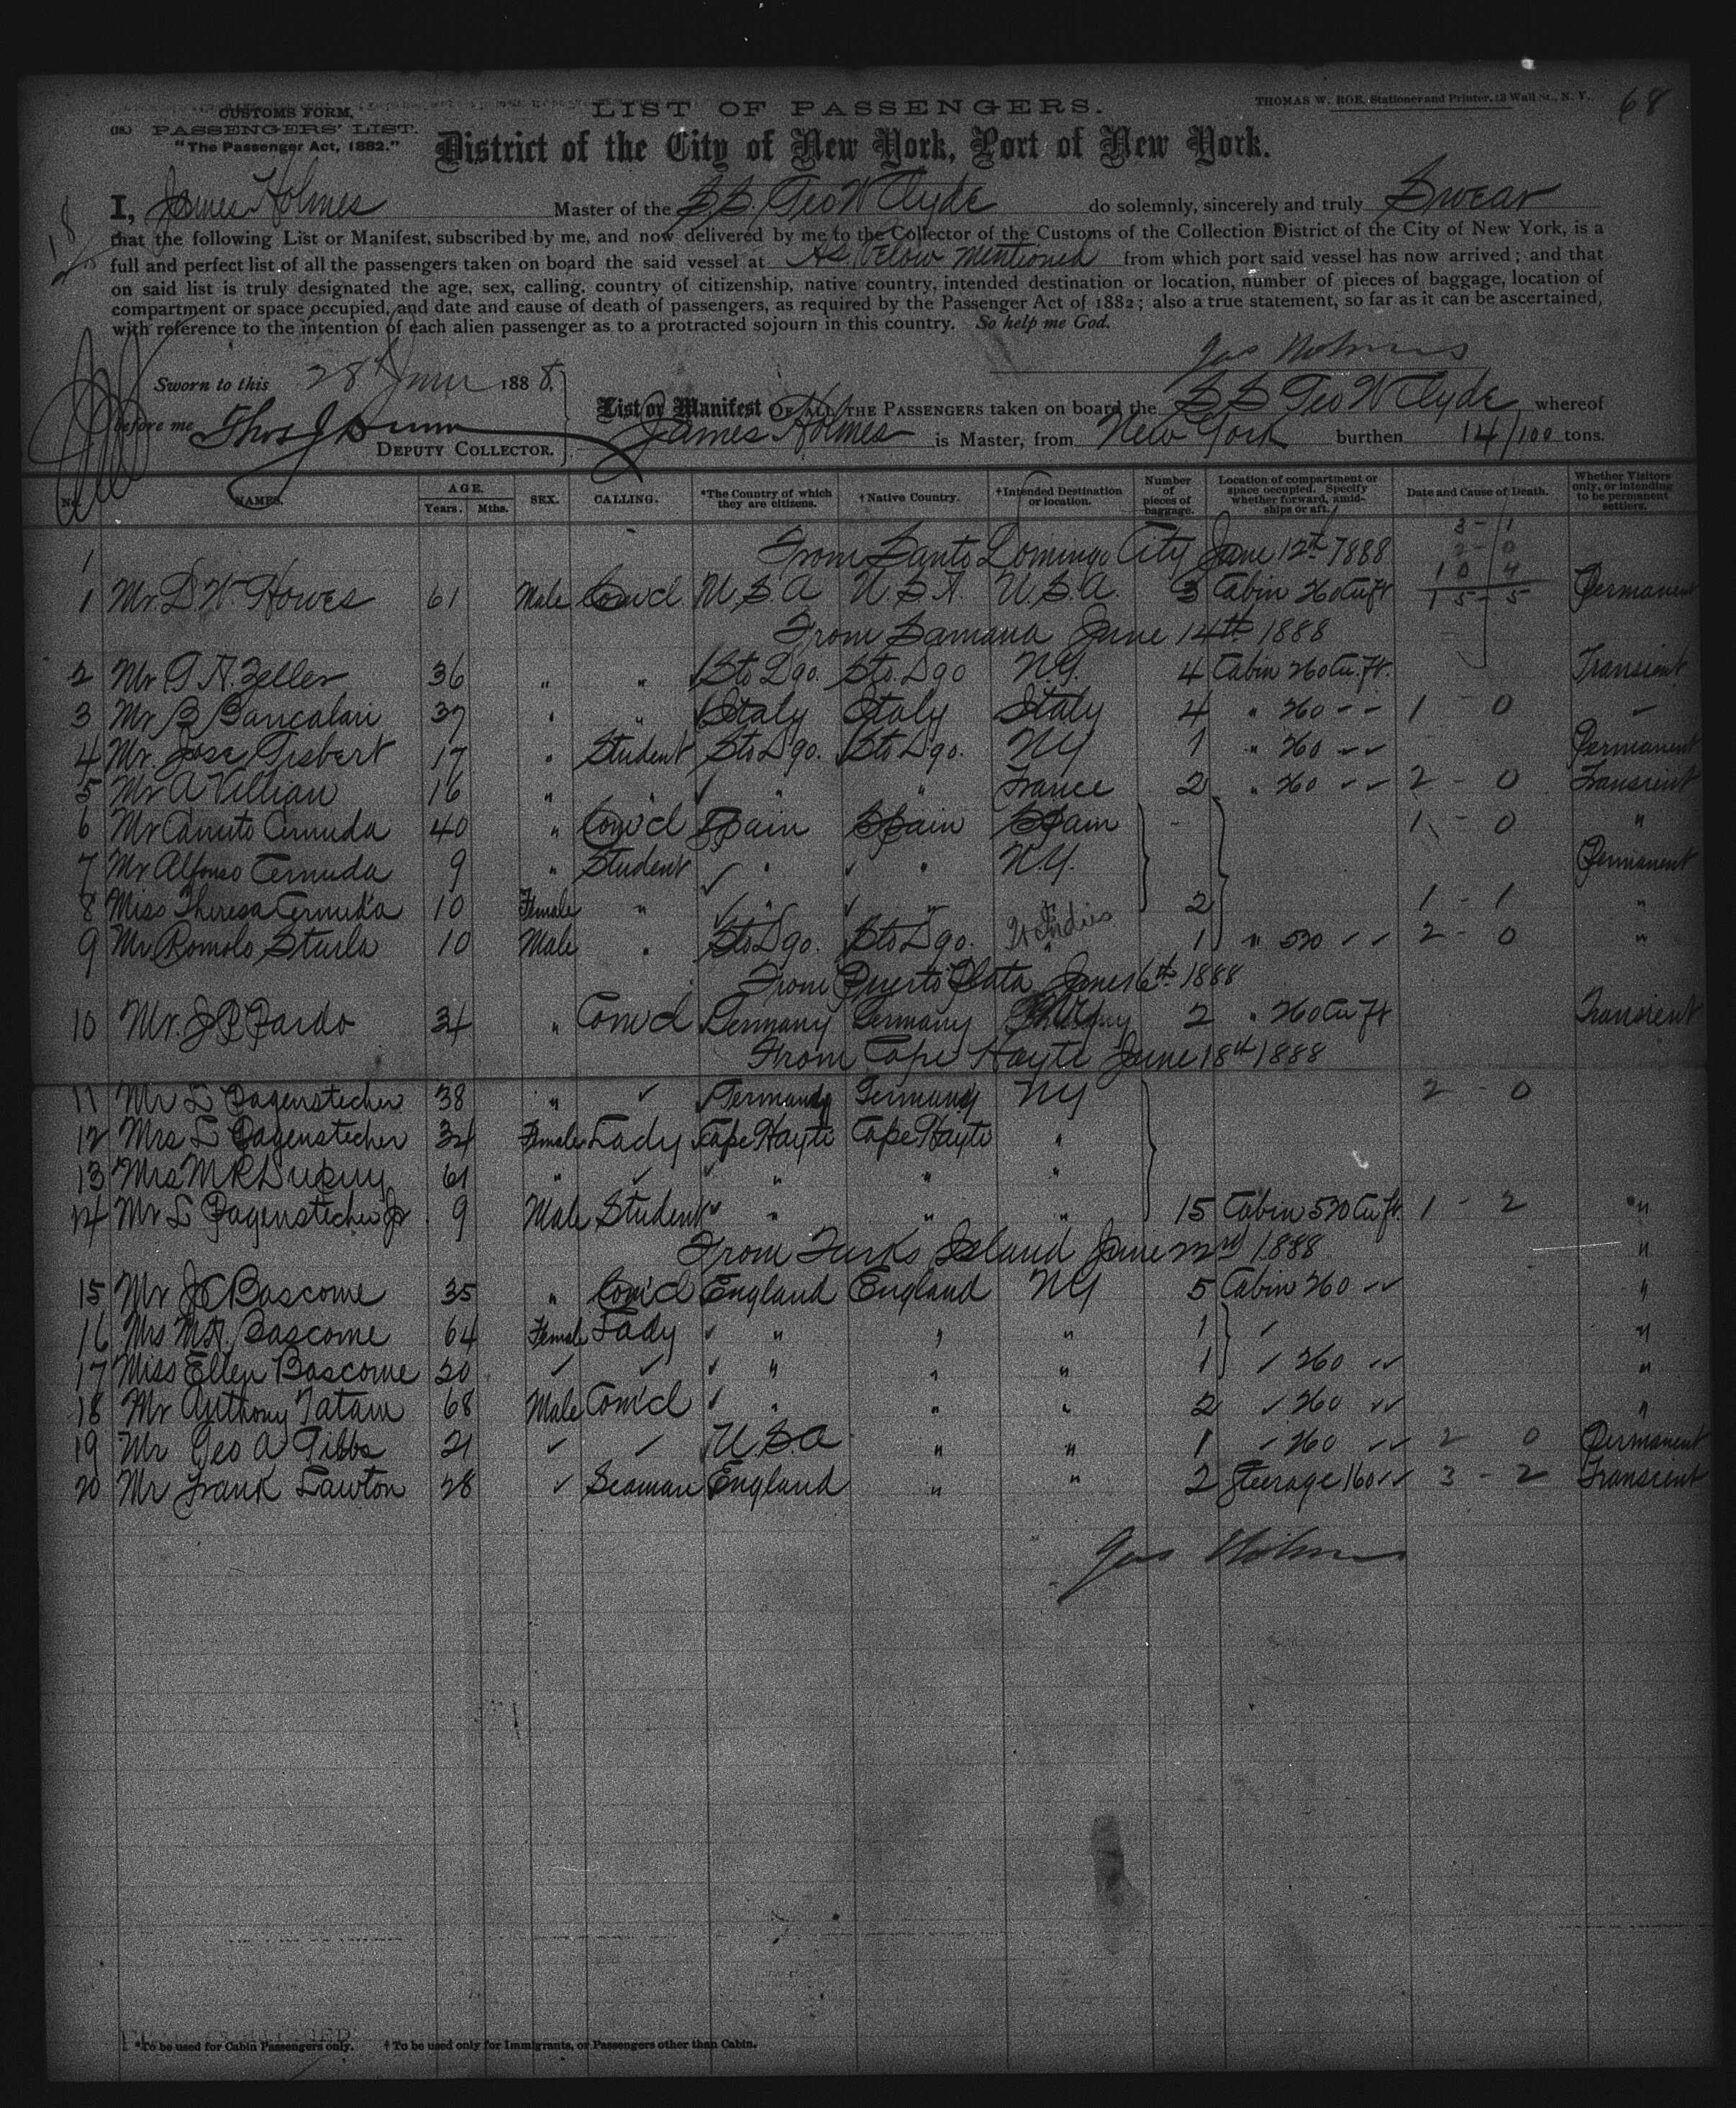 CUSTOMS FORM,
PASSENGERS' LIST.
"The Passenger Act, 1882."
LIST OF PASSENGERS.
THOMAS W. ROE, Stationer and Printer, 13 Wall St., N. Y.
68
District of the City of New York, Port of New York.
I, James Holmes Master of the S.S. Geo W Clyde do solemnly, sincerely and truly Swear
that the following List or Manifest, subscribed by me, and now delivered by me to the Collector of the Customs of the Collection District of the City of New York, is a
full and perfect list of all the passengers taken on board the said vessel at As Below Mentioned from which port said vessel has now arrived; and that
on said list is truly designated the age, sex, calling, country of citizenship, native country, intended destination or location, number of pieces of baggage, location of
compartment or space occupied, and date and cause of death of passengers, as required by the Passenger Act of 1882; also a true statement, so far as it can be ascertained,
with reference to the intention of each alien passenger as to a protracted sojourn in this country. So help me God.
Jas Holmes
Sworn to this 28th June 1888.
before me Thos J Dunn
DEPUTY COLLECTOR.
List or Manifest OF ALL THE PASSENGERS taken on board the SS Geo W Clyde whereof
James Holmes is Master, from New York burthen 14/100 tons.
No. NAMES. AGE. Years. Mths. SEX. CALLING. *The Country of which they are citizens. †Native Country. †Intended Destination or location. Number of pieces of baggage. Location of compartment or space occupied. Specify whether forward, amidships or aft. Date and Cause of Death. Whether Visitors only, or intending to be permanent settlers.
3 - 1
1 From Santo Domingo City June 12th 1888 2 - 0
10 4
1 Mr D. W. Howes 61 Male Com'cl U.S.A U.S.A. U.S.A. 3 Cabin 260 Cu ft 15 - 5 Permanent
From Samana June 14th 1888
2 Mr G. A. Zeller 36 " " Sto Dgo. Sto. Dgo N.Y. 4 Cabin 260 Cu. Ft. Transient
3 Mr B Bancalari 37 " " Italy Italy Italy 4 " 260 - - 1 - 0 -
4 Mr. Jose Gisbert 17 " Student Sto Dgo. Sto Dgo. NY 1 " 260 - - Permanent
5 Mr A Villian 16 " " " " France 2 " 260 - - 2 - 0 Transient
6 Mr Canuto Cernuda 40 " Com'cl Spain Spain Spain - 1 - 0 "
7 Mr Alfonso Cernuda 9 " Student " " N.Y. Permanent
8 Miss Theresa Cernuda 10 Female " " " " 2 1 - 1 "
9 Mr Romolo Sturla 10 Male " Sto Dgo. Sto Dgo. W Indies 1 " 520 - - 2 - 0 "
From Puerto Plata June 16th 1888
10 Mr. J P Pardo 34 " Com'cl Germany Germany 2 " 260 Cu ft Transient
From Cape Hayti June 18th 1888
11 Mr L Pagenstecher 38 " " Germany Germany NY 2 - 0
12 Mrs L Pagenstecher 34 Female Lady Cape Hayti Cape Hayti "
13 Mrs M R Dupuy 61 " " " " "
14 Mr L Pagenstecher Jr 9 Male Student " " " 15 Cabin 520 Cu ft. 1 - 2 "
From Turks Island June 22nd 1888 "
15 Mr J C Bascome 35 " Com'cl England England NY 5 Cabin 260 "
16 Mrs M A. Bascome 64 Female Lady " " " 1 "
17 Miss Ellen Bascome 20 " " " " " 1 " 260 "
18 Mr Anthony Tatam 68 Male Com'cl " " " 2 " 260 "
19 Mr Geo A Gibbs 21 " " U.S.A " " 1 " 260 2 0 Permanent
20 Mr Frank Lawton 28 " Seaman England " " 2 Steerage 160 3 - 2 Transient
Jas Holmes
*To be used for Cabin Passengers only. †To be used only for Immigrants, or Passengers other than Cabin.